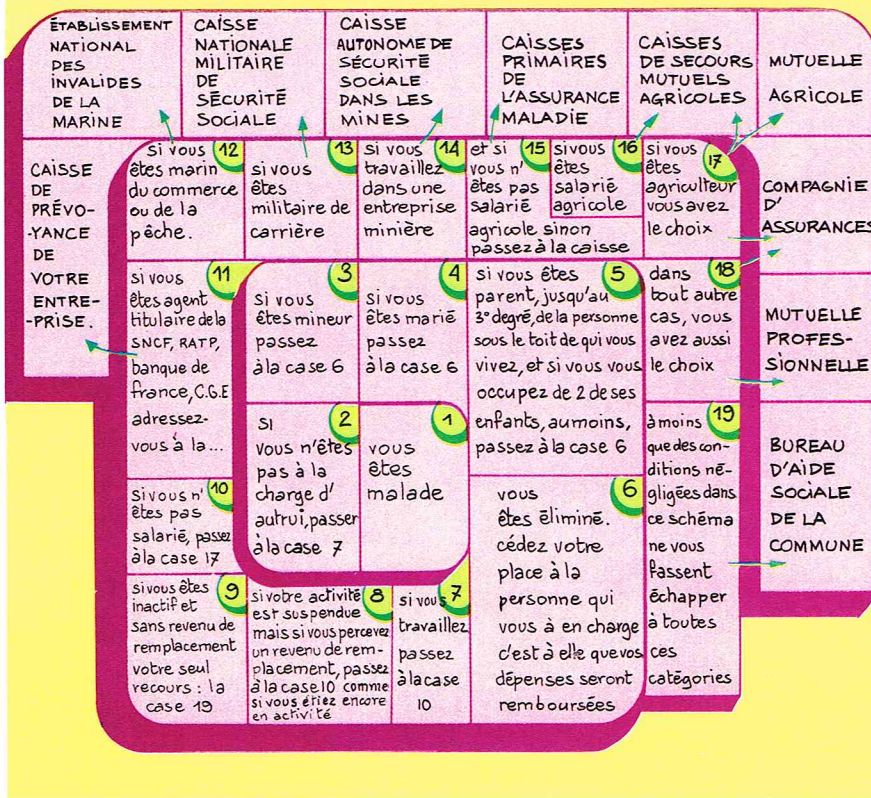 ÉTABLISSEMENT
NATIONAL
DES
INVALIDES
DE LA
MARINE
CAISSE
NATIONALE
MILITAIRE
DE
SÉCURITÉ
SOCIALE
CAISSE
AUTONOME DE
SÉCURITÉ
SOCIALE
DANS LES
MINES
CAISSES
PRIMAIRES
DE
L'ASSURANCE
MALADIE
CAISSES
DE SECOURS
MUTUELS
AGRICOLES
MUTUELLE
AGRICOLE
CAISSE
DE
PRÉVO-
-YANCE
DE
VOTRE
ENTRE-
-PRISE.
12
si vous
êtes marin
du commerce
ou de la
pêche.
13
si vous
êtes
militaire de
carrière
14
si vous
travaillez
dans une
entreprise
minière
15
et si
vous n'
êtes pas
salarié
agricole sinon
passez à la caisse
16
si vous
êtes
salarié
agricole
17
si vous
êtes
agriculteur
vous avez
le choix
COMPAGNIE
D'
ASSURANCES
11
si vous
êtes agent
titulaire de la
SNCF, RATP,
banque de
france, C.G.E
adressez-
vous à la...
3
si vous
êtes mineur
passez
à la case 6
4
si vous
êtes marié
passez
à la case 6
5
si vous êtes
parent, jusqu'au
3° degré, de la personne
sous le toit de qui vous
vivez, et si vous vous
occupez de 2 de ses
enfants, au moins,
passez à la case 6
18
dans
tout autre
cas, vous
avez aussi
le choix
MUTUELLE
PROFES-
SIONNELLE
2
si
vous n'êtes
pas à la
charge d'
autrui, passer
à la case 7
1
vous
êtes
malade
19
à moins
que des con-
ditions né-
gligées dans
ce schéma
ne vous
fassent
échapper
à toutes
ces
catégories
BUREAU
D'AIDE
SOCIALE
DE LA
COMMUNE
10
si vous n'
êtes pas
salarié, passez
à la case 17
6
vous
êtes éliminé.
cédez votre
place à la
personne qui
vous à en charge
c'est à elle que vos
dépenses seront
remboursées
9
si vous êtes
inactif et
sans revenu de
remplacement
votre seul
recours : la
case 19
8
si votre activité
est suspendue
mais si vous percevez
un revenu de rem-
placement, passez
à la case 10 comme
si vous étiez encore
en activité
7
si vous
travaillez
passez
à la case
10